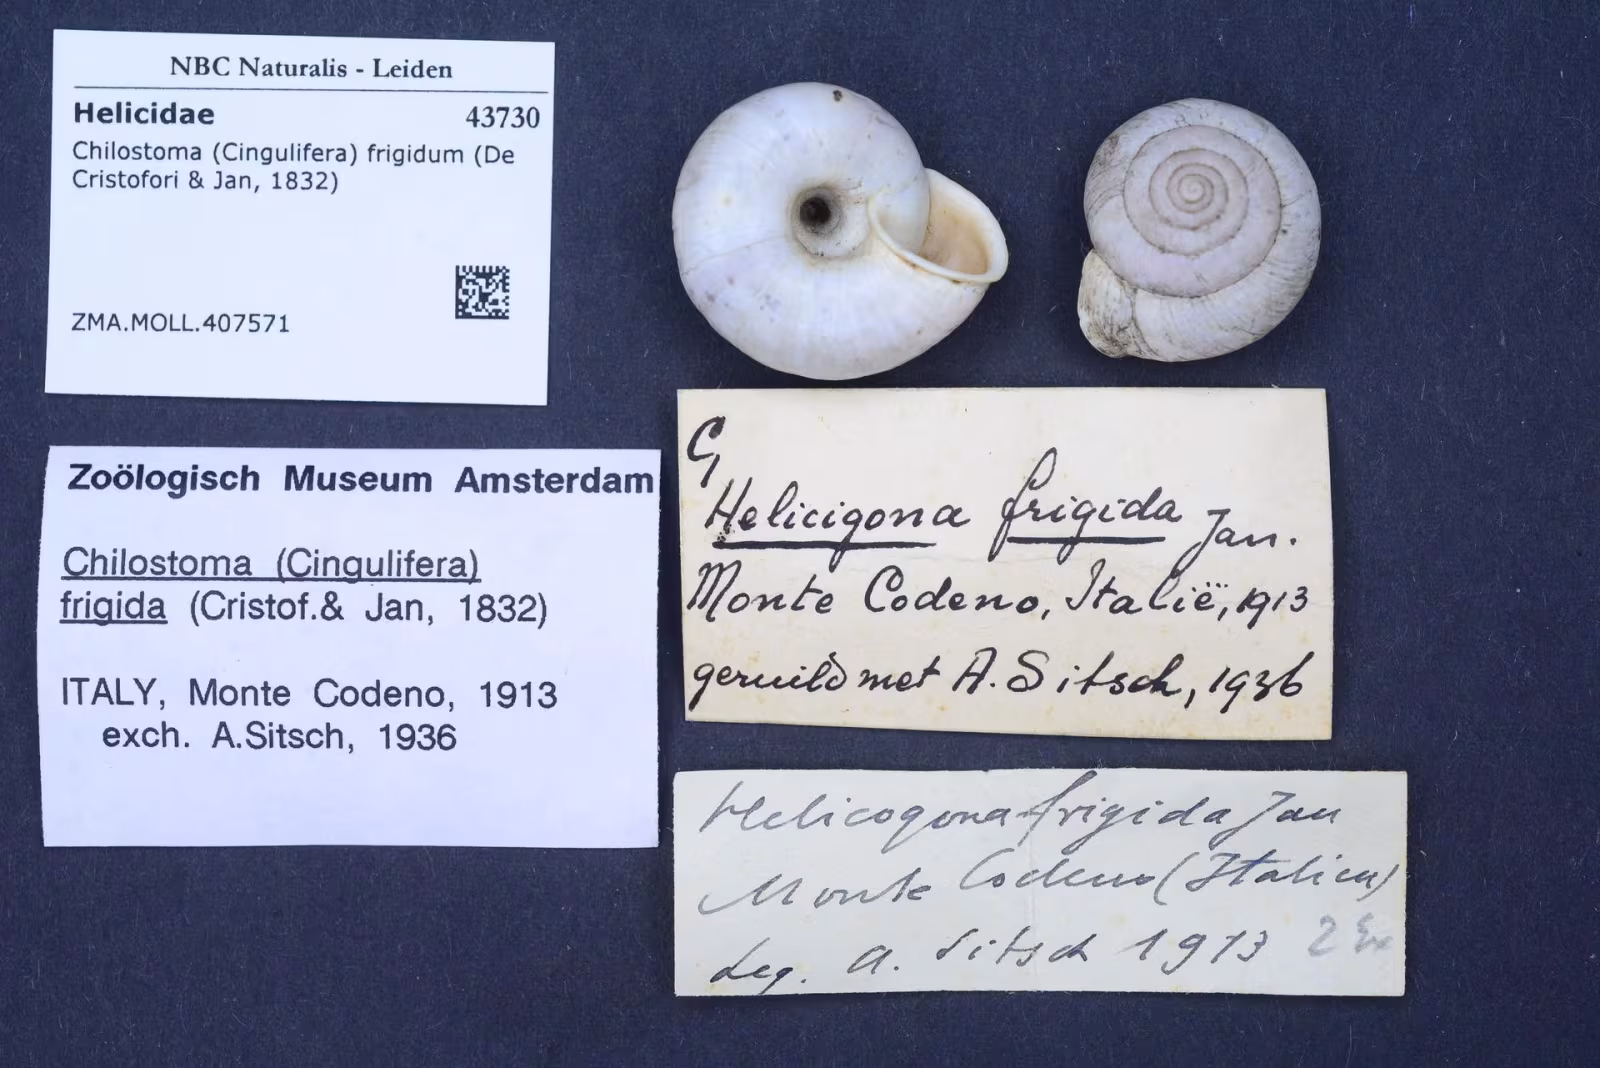 NBC Naturalis - Leiden
Helicidae 43730
Chilostoma (Cingulifera) frigidum (De
Cristofori & Jan, 1832)
ZMA.MOLL.407571
Zoölogisch Museum Amsterdam
Chilostoma (Cingulifera)
frigida (Cristof.& Jan, 1832)
ITALY, Monte Codeno, 1913
exch. A.Sitsch, 1936
G
Helicigona frigida Jan.
Monte Codeno, Italië, 1913
geruild met A. Sitsch, 1936
Helicogona frigida Jan
Monte Codeno (Italien)
leg. A. Sitsch 1913 2 Ex